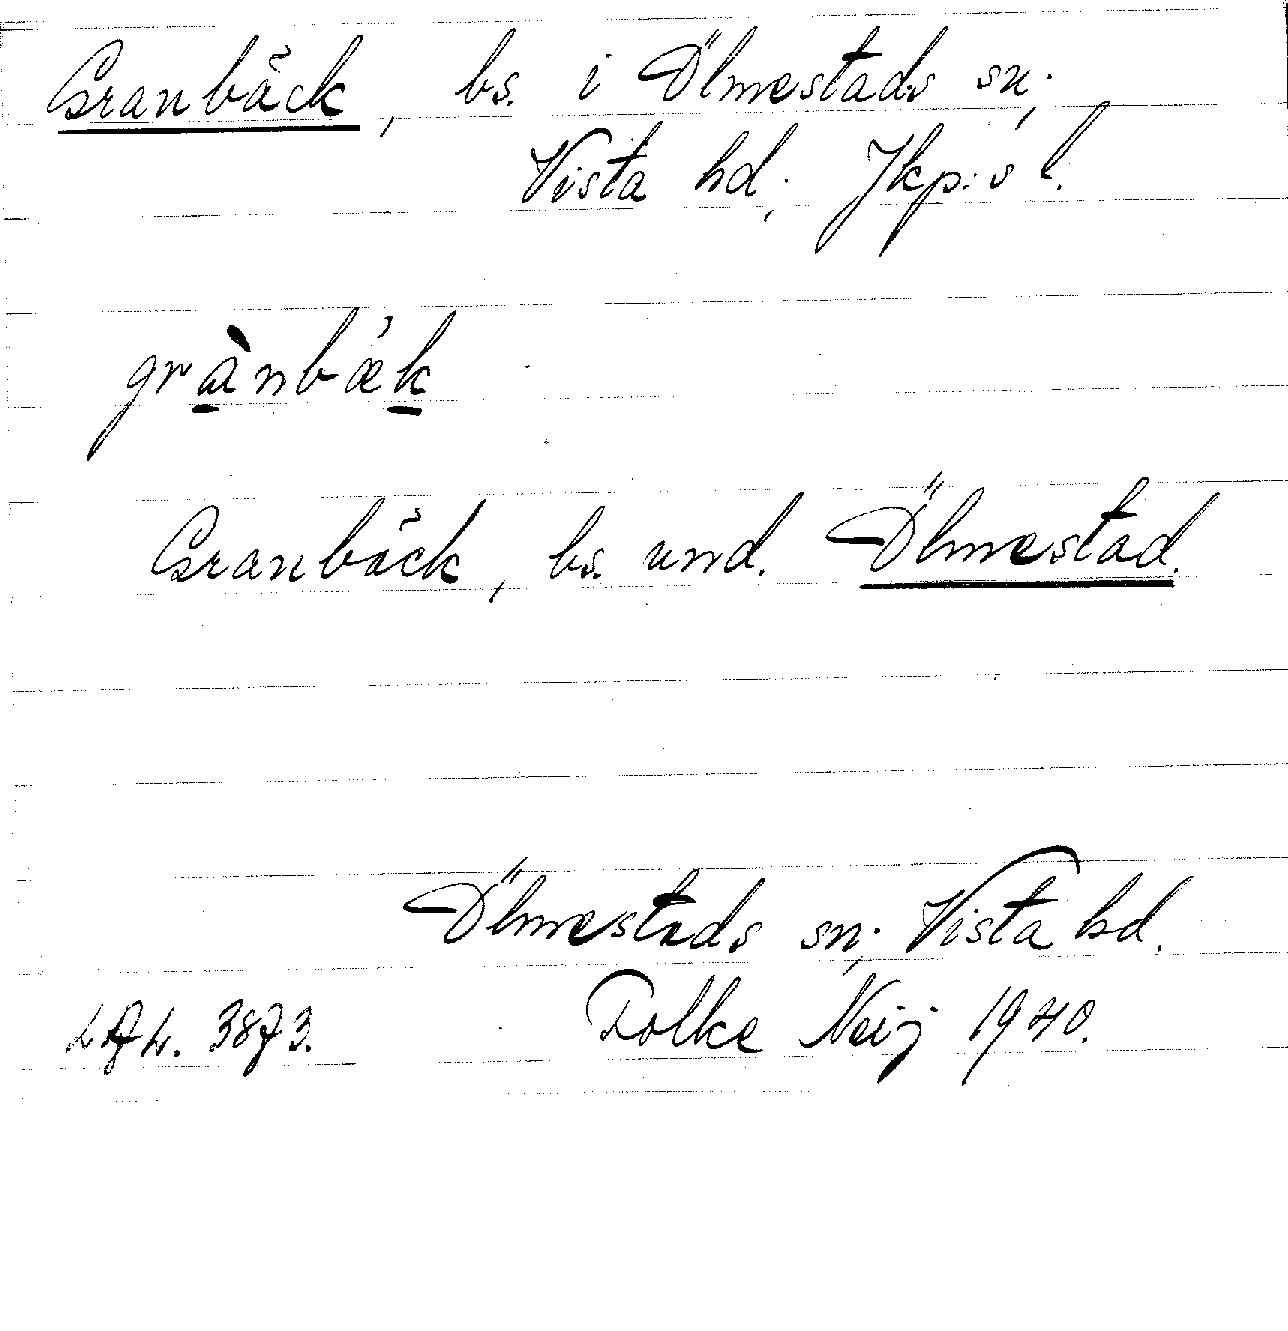 Granbäck, bs. i Ölmestads sn;
Vista hd; Jkp:s l.
grànbǽk
Granbäck, bs. und. Ölmestad.
Ölmestads sn; Vista hd.
3873. Folke Neij 1940.